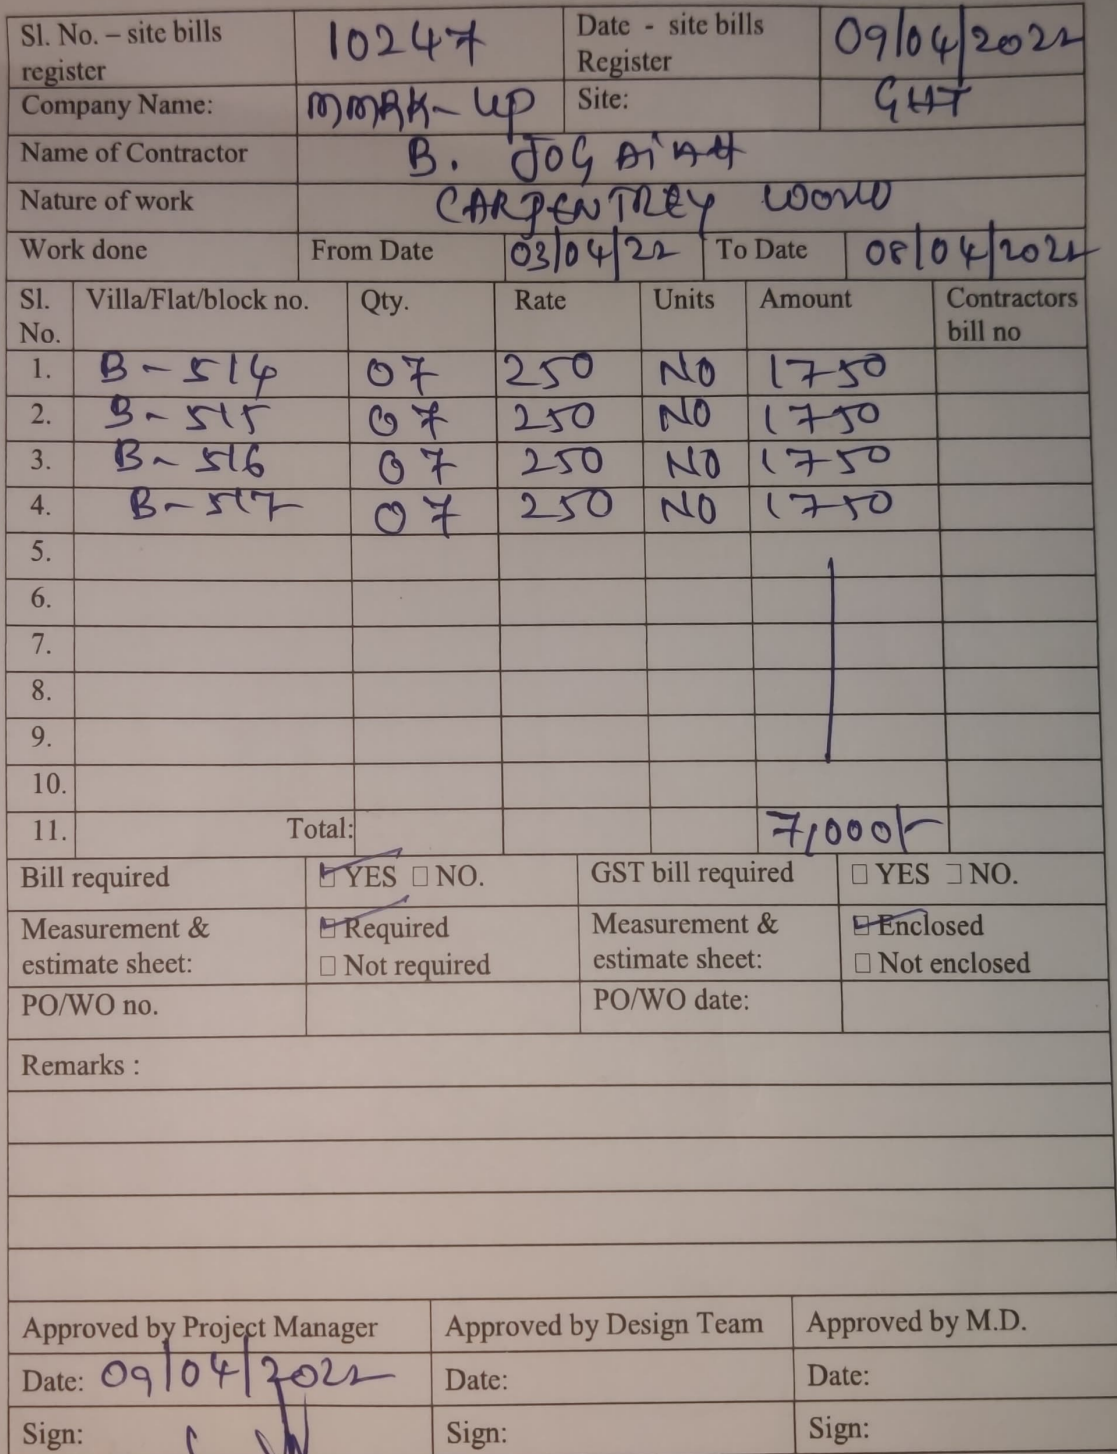 Sl. No. – site bills register 10247 Date - site bills Register 09/04/2022
Company Name: MMRK-UP Site: GHT
Name of Contractor B. JOGAiAH
Nature of work CARPENTREY WORK
Work done From Date 03/04/22 To Date 08/04/2022
Sl. No. Villa/Flat/block no. Qty. Rate Units Amount Contractors bill no
1. B-514 07 250 NO 1750
2. B-515 07 250 NO 1750
3. B-516 07 250 NO 1750
4. B-517 07 250 NO 1750
5.
6.
7.
8.
9.
10.
11. Total: 7,000/-
Bill required YES NO. GST bill required YES NO.
Measurement & estimate sheet: Required Not required Measurement & estimate sheet: Enclosed Not enclosed
PO/WO no. PO/WO date:
Remarks :
Approved by Project Manager Approved by Design Team Approved by M.D.
Date: 09/04/2022 Date: Date:
Sign: Sign: Sign: